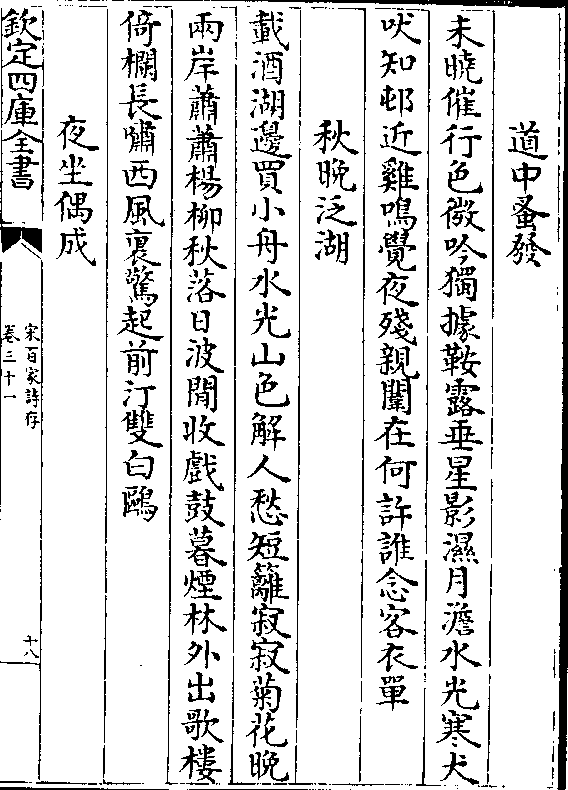 道中蚤發
未曉催行色微吟獨據鞍露垂星影濕月澹水光寒犬
吠知邨近雞鳴覺夜殘親闈在何許誰念客衣單
秋晚泛湖
載酒湖邊買小舟水光山色解人愁短籬寂寂菊花晚
兩岸蕭蕭楊柳秋落日波閒收戲鼓暮煙林外出歌樓
倚欄長嘯西風裏驚起前汀雙白鷗
夜坐偶成
欽定四庫全書
宋百家詩存
卷三十一
十八